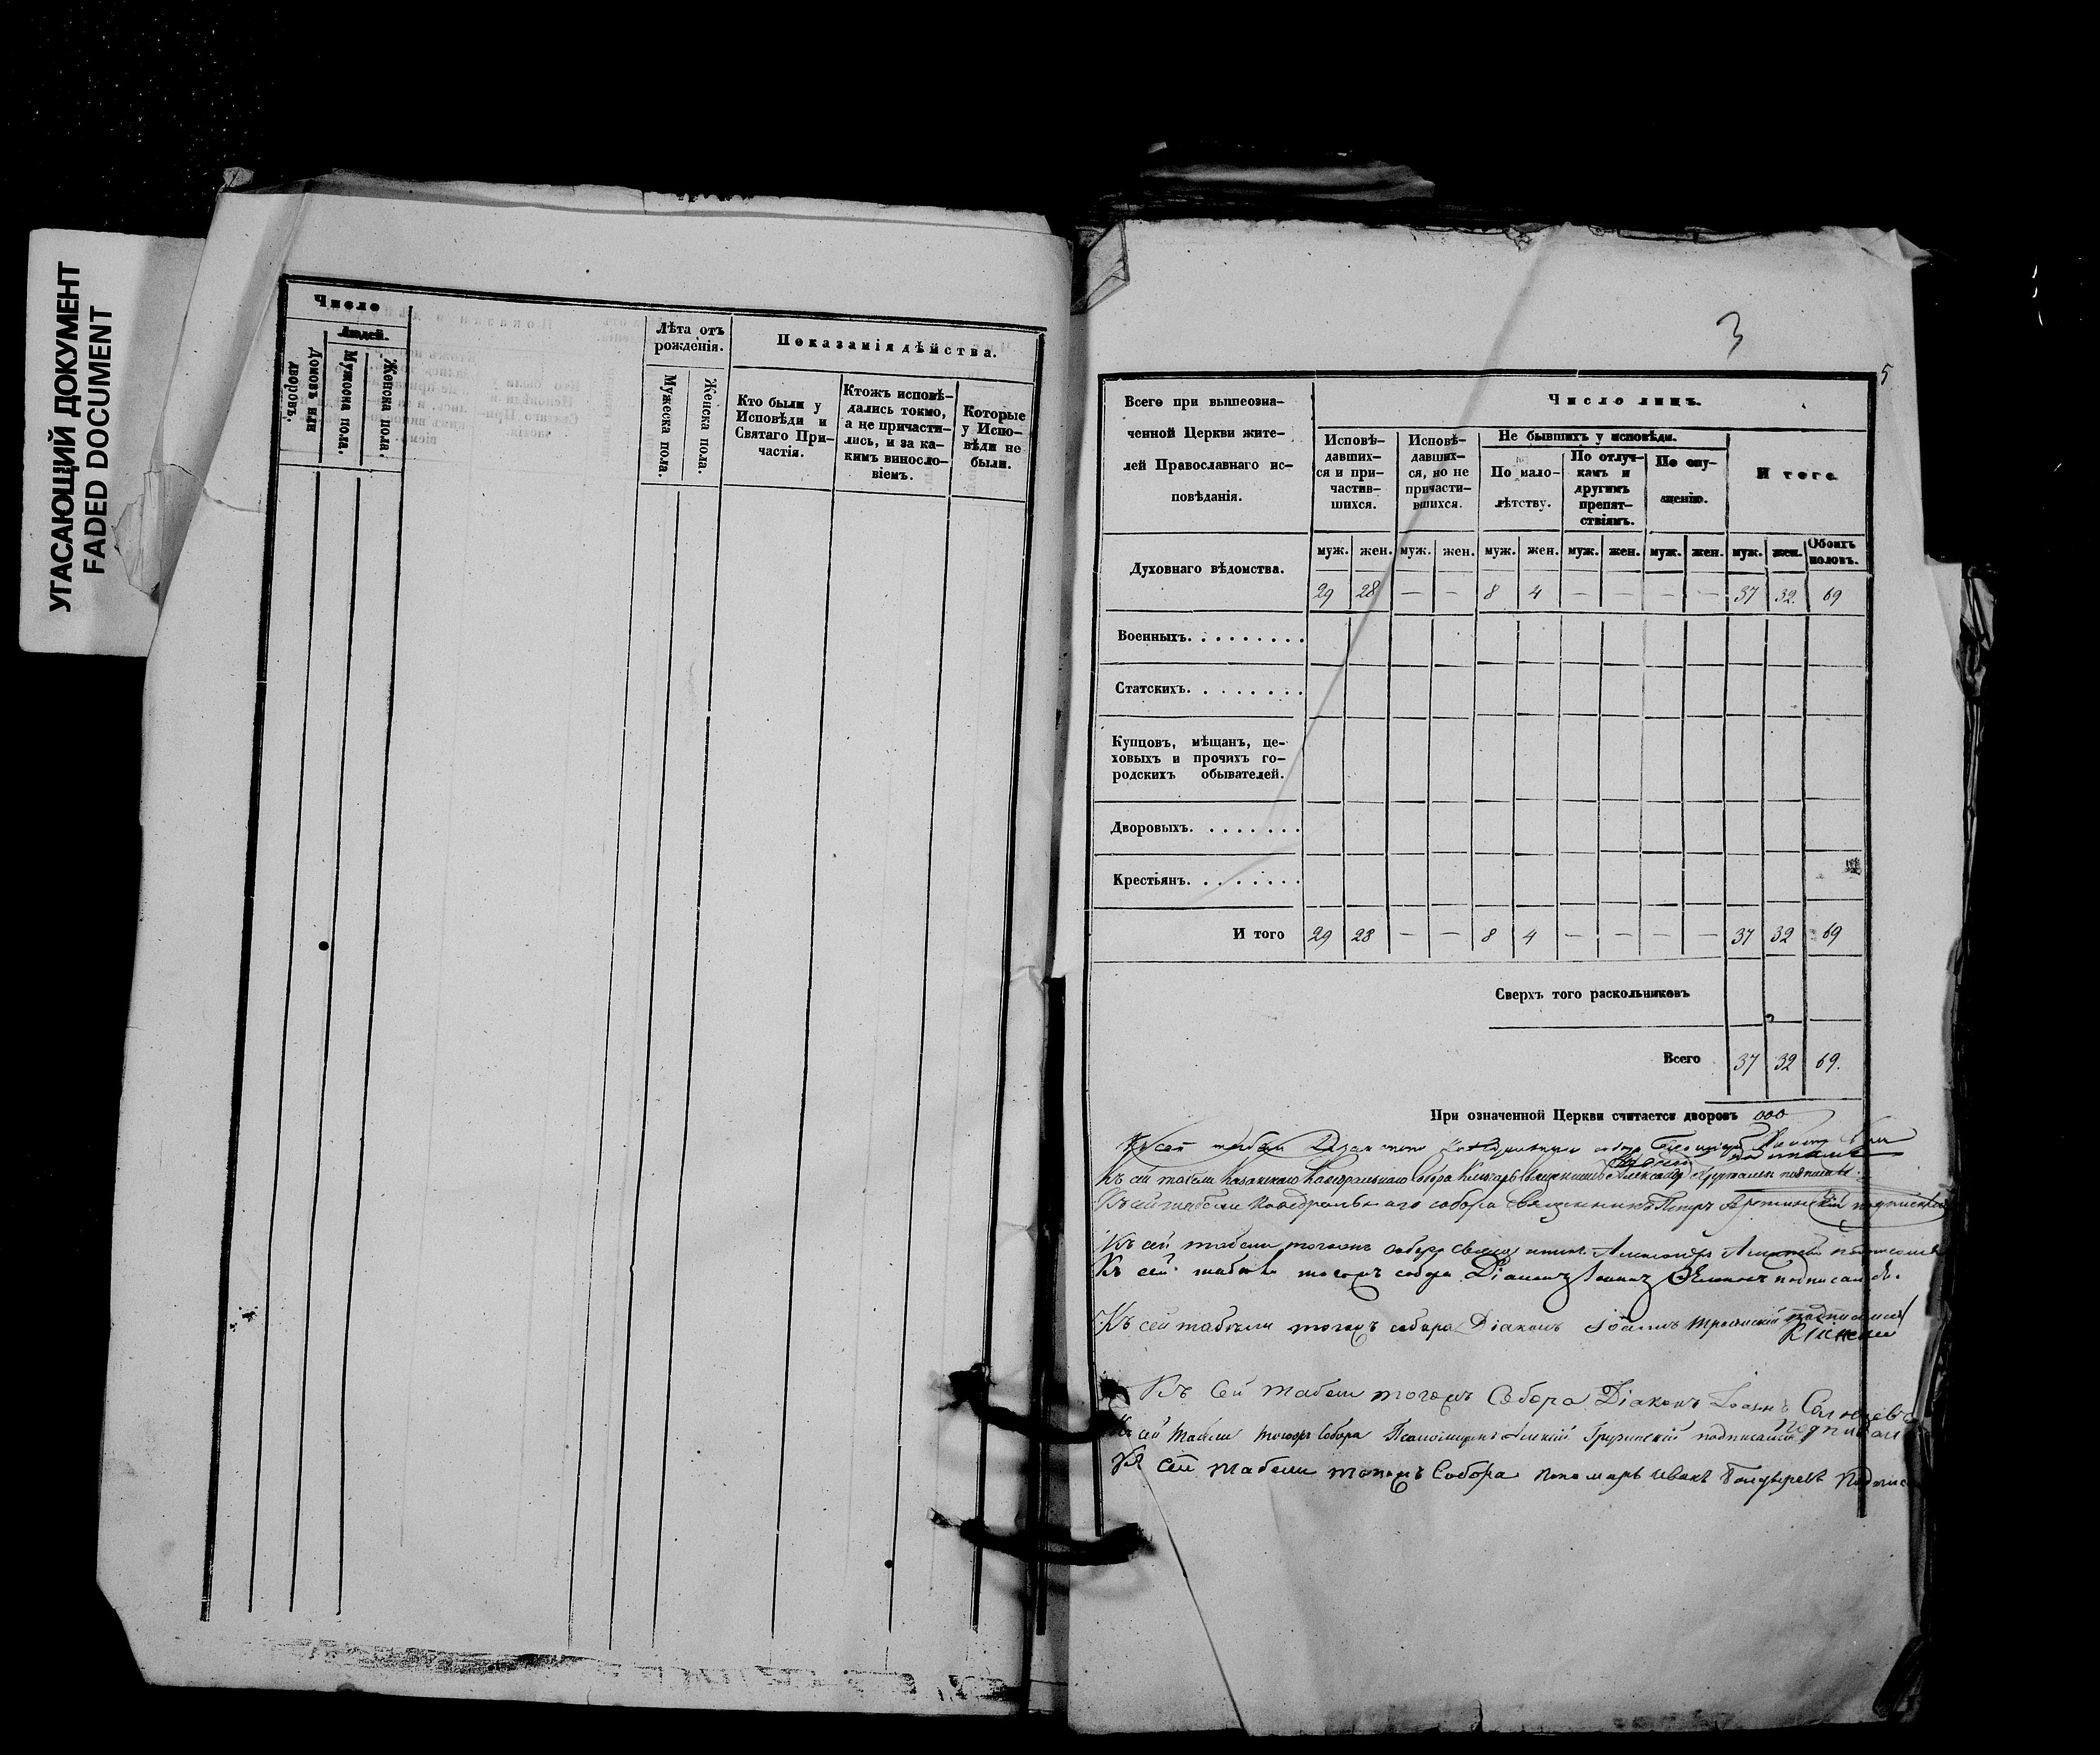 УГАСАЮЩИЙ ДОКУМЕНТ
FADED DOCUMENT
Число
Людей.
Домовъ или
дворовъ.
Мужеска пола.
Женска пола.
Лѣта отъ
рожденія.
Мужеска пола.
Женска пола.
Показанія дѣйства.
Кто были у
Исповѣди и
Святаго При-
частія.
Ктожъ исповѣ-
дались токмо,
а не причасти-
лись, и за ка-
кимъ виносло-
віемъ.
Которые
у Испо-
вѣди не
были.
3
5
Всего при вышеозна-
ченной Церкви жите-
лей Православнаго ис-
повѣданія.
Число лицъ.
Исповѣ-
давших-
ся и при-
частив-
шихся.
Исповѣ-
давших-
ся, но не
причасти-
вшихся.
Не бывшихъ у исповѣди.
По мало-
лѣтству.
По отлуч-
камъ и
другимъ
препят-
ствіямъ.
По опу-
щенію.
И того
муж. жен. муж. жен. муж. жен. муж. жен. муж. жен. муж. жен. Обоихъ половъ.
Духовнаго вѣдомства.
29 28 — — 8 4 — — — — 37 32. 69
Военныхъ. . . . . . . . .
Статскихъ. . . . . . . .
Купцовъ, мѣщанъ, це-
ховыхъ и прочихъ го-
родскихъ обывателей.
Дворовыхъ. . . . . . . .
Крестьянъ. . . . . . . .
И того 29 28 — — 8 4 — — — — 37 32 69
Сверхъ того раскольниковъ
Всего 37 32 69.
При означенной Церкви считается дворовъ
Къ сей табели
Къ сей табели Казанскаго Каѳедральнаго Собора Ключарь Священникъ Александръ подписался
Къ сей табели Каѳедральнаго собора Священникъ Петръ подписался
Къ сей табели тогожъ собора Священникъ
Къ сей табели тогожъ собора Діаконъ подписался.
Къ сей табели тогожъ собора Діаконъ Іоаннъ подписался
Къ сей табели тогожъ Собора Діаконъ Іоаннъ
Къ сей табели тогожъ Собора подписался
Къ сей табели тогожъ Собора пономарь Иванъ